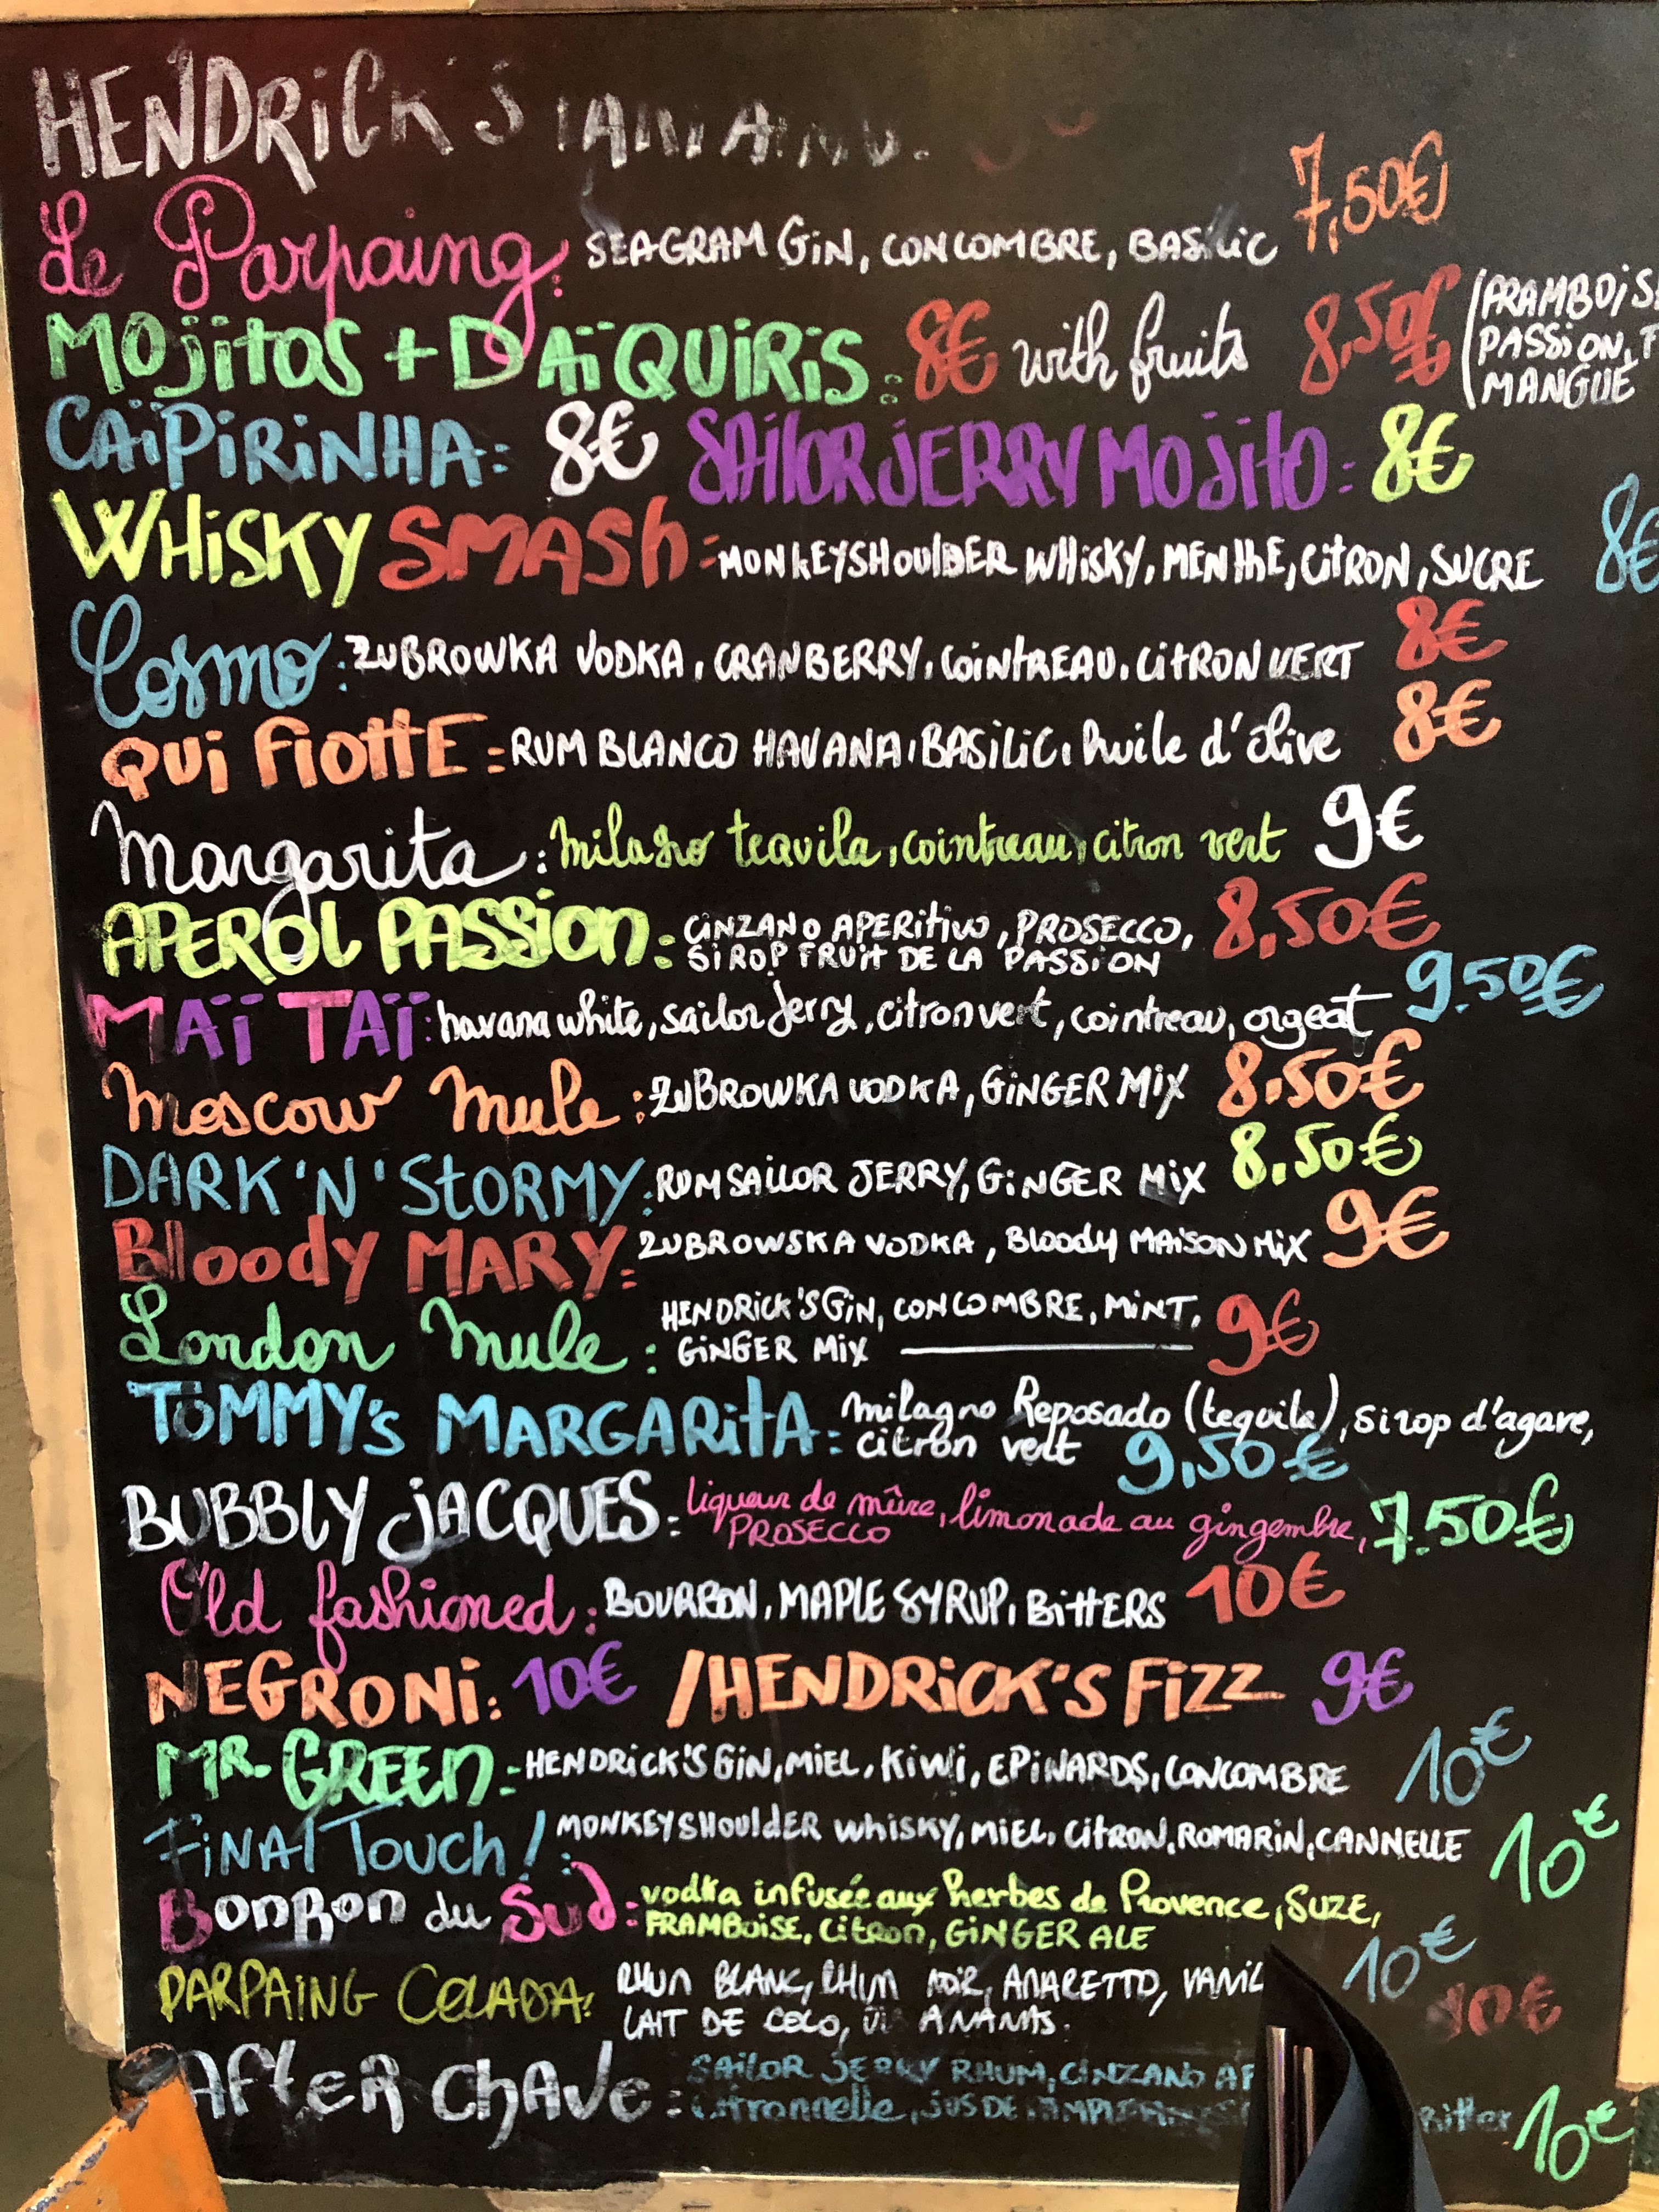 HENDRICK'S
Le Parpaing: SEAGRAM GIN, CONCOMBRE, BASILIC 7,50€
MOJITOS + DAÏQUIRIS: 8€ with fruits 8,50€ (FRAMBOIS
PASSION,
MANGUE
CAÏPIRINHA: 8€ SAILOR JERRY MOJITO: 8€
WHISKY SMASH: MONKEYSHOULDER WHISKY, MENTHE, CITRON, SUCRE 8€
Cosmo: ZUBROWKA VODKA, CRANBERRY, COINTREAU, CITRON VERT 8€
QUI FIOTTE: RUM BLANCO HAVANA, BASILIC, huile d'olive 8€
Margarita: milagro tequila, cointreau, citron vert 9€
APEROL PASSION: CINZANO APERITIVO, PROSECCO, 8,50€
SIROP FRUIT DE LA PASSION
MAÏ TAÏ: havana white, sailor Jerry, citron vert, cointreau, orgeat 9.50€
Moscow Mule: ZUBROWKA VODKA, GINGER MIX 8.50€
DARK'N'STORMY: RUM SAILOR JERRY, GINGER MIX 8.50€
Bloody MARY: ZUBROWSKA VODKA, BLOODY MAISON MIX 9€
London Mule: HENDRICK'S GIN, CONCOMBRE, MINT,
GINGER MIX 9€
TOMMY'S MARGARITA: milagro Reposado (tequila), sirop d'agave,
citron vert 9,50€
BUBBLY JACQUES: liqueur de mûre, limonade au gingembre, 7.50€
PROSECCO
Old fashioned: BOURBON, MAPLE SYRUP, BITTERS 10€
NEGRONI: 10€ /HENDRICK'S FIZZ 9€
MR. GREEN: HENDRICK'S GIN, MIEL, KIWI, EPINARDS, CONCOMBRE 10€
FINAL TOUCH!: MONKEYSHOULDER WHISKY, MIEL, CITRON, ROMARIN, CANNELLE 10€
BONBON du Sud: vodka infusée aux herbes de Provence, SUZE,
FRAMBOISE, CITRON, GINGER ALE 10€
PARPAING COLADA: RHUM BLANC, RHUM NOIR, AMARETTO, VANIL
LAIT DE COCO, ANANAS. 10€
AFTER CHAVE: SAILOR JERRY RHUM, CINZANO AP
Citronnelle, JUS DE PAMPLEMOUSSE Bitter 10€